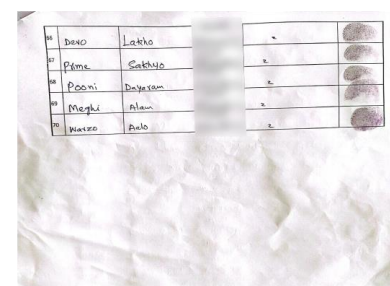 66 Devo Lakho
67 Prime Sakhyo 2
68 Pooni Dayaram 2
69 Meghi Alam 2
70 Warzo Aelo 2